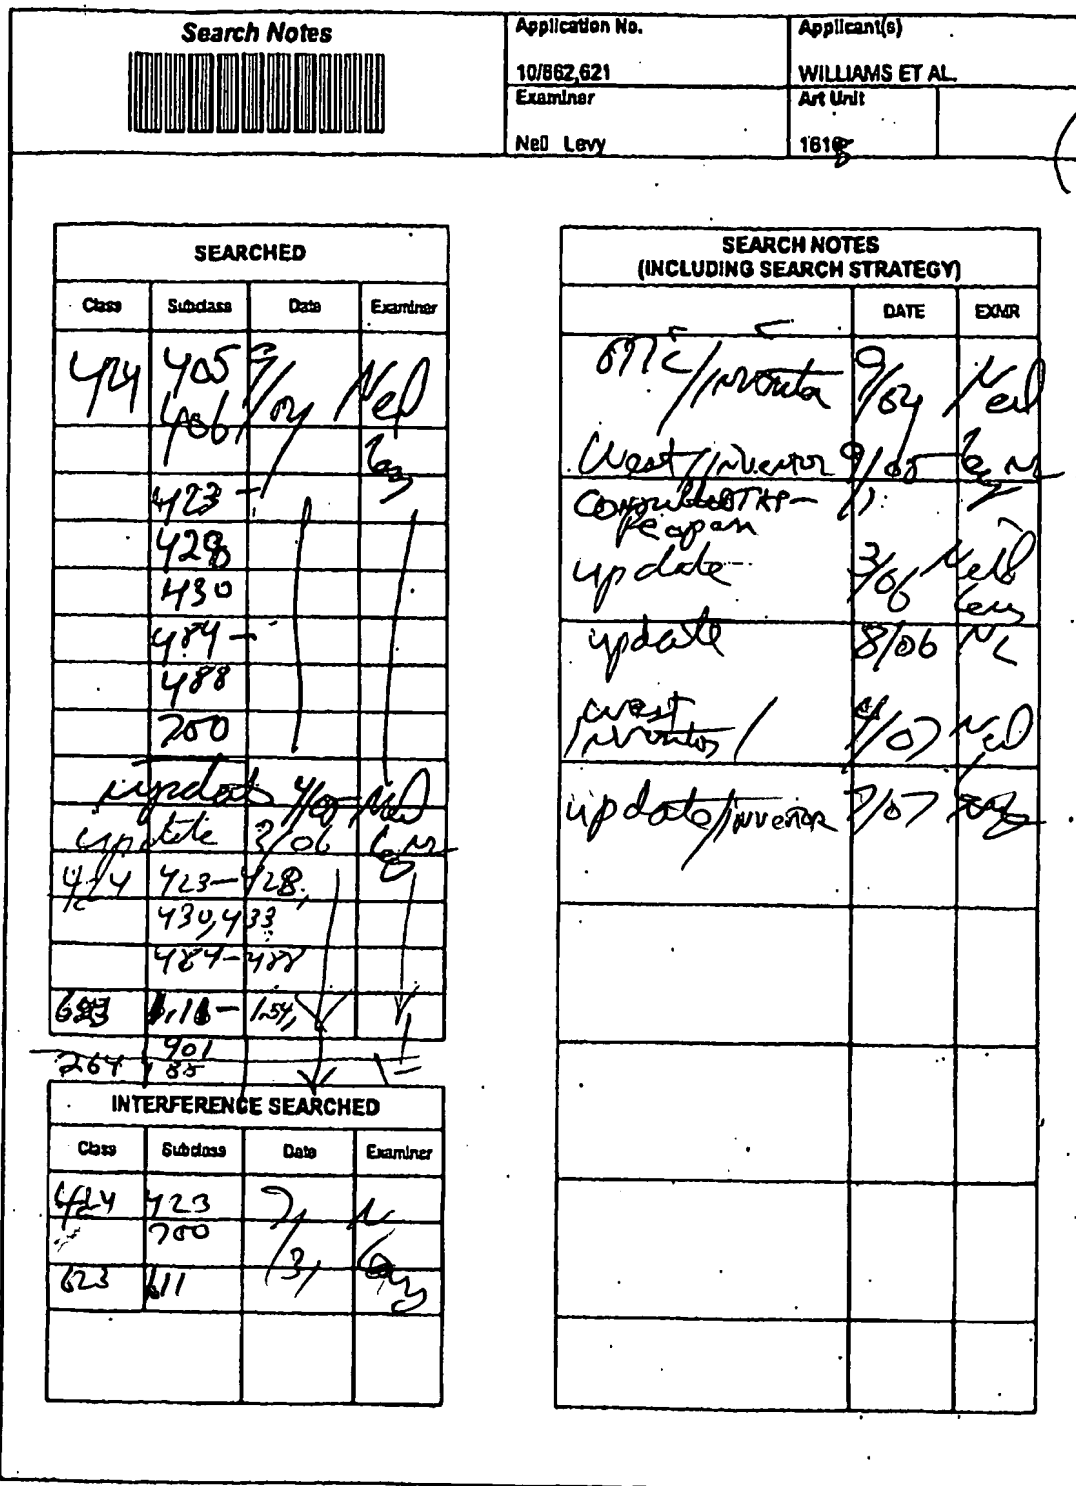 Search Notes
Application No.
10/662,621
Applicant(s)
WILLIAMS ET AL.
Examiner
Neil Levy
Art Unit
1616
SEARCHED
Class Subclass Date Examiner
424 405 9/04 Neil
406 Levy
423 -
428
430
484 -
488
700
update 4/05 Neil
update 3/06 Levy
424 423-428,
430,433
484-488
623 1.11- 1.54,
901
264 85
INTERFERENCE SEARCHED
Class Subclass Date Examiner
424 423
700
623 611
SEARCH NOTES
(INCLUDING SEARCH STRATEGY)
DATE EXMR
/inventor 9/04 Neil
West/inventor 9/05 Levy
Consulted
update 3/06 Neil
Levy
update 8/06 NL
West
inventor / 4/07 Neil
update/inventor 7/07 Levy